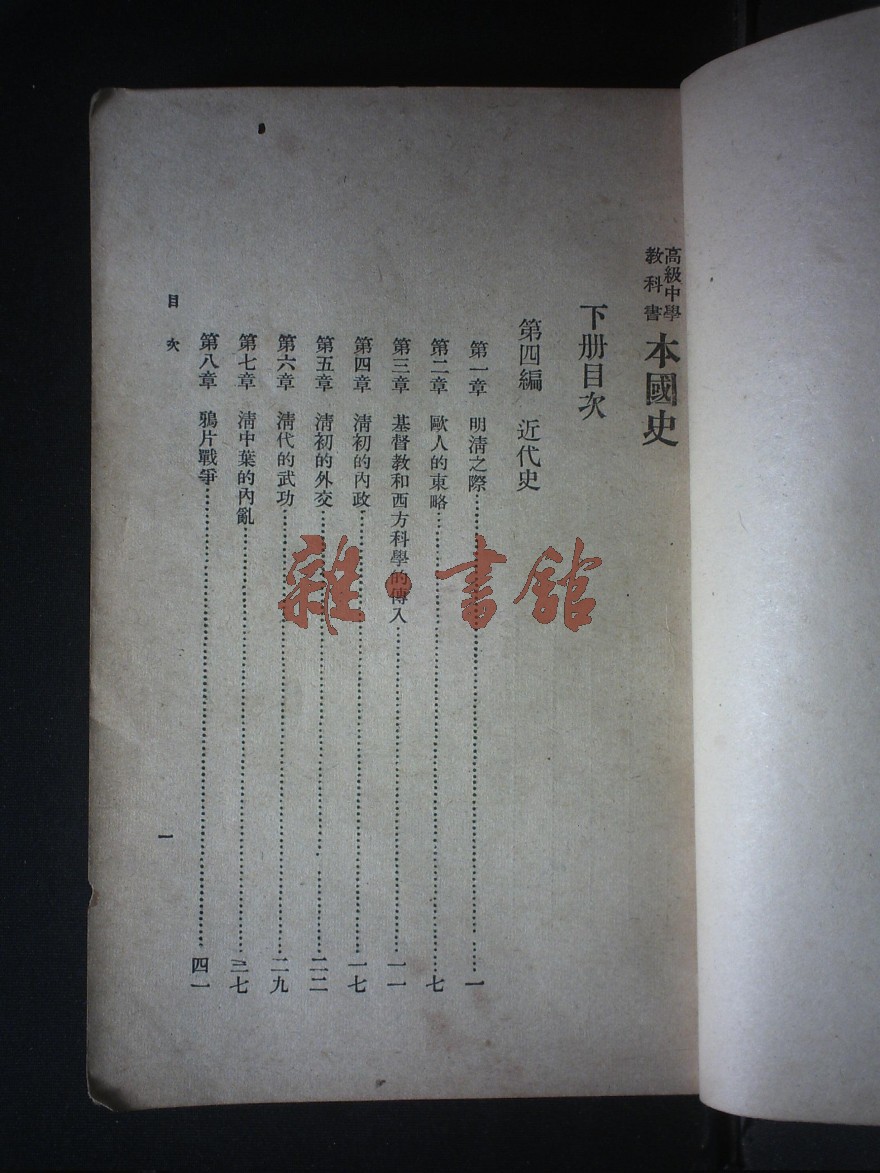 高級中學
教科書
本國史
下册目次
第四編 近代史
第一章 明淸之際……一
第二章 歐人的東略……七
第三章 基督教和西方科學的傳入……一一
第四章 淸初的內政……一七
第五章 淸初的外交……二二
第六章 淸代的武功……二九
第七章 淸中葉的內亂……三七
第八章 鴉片戰爭……四一
目次
一
雜·書館